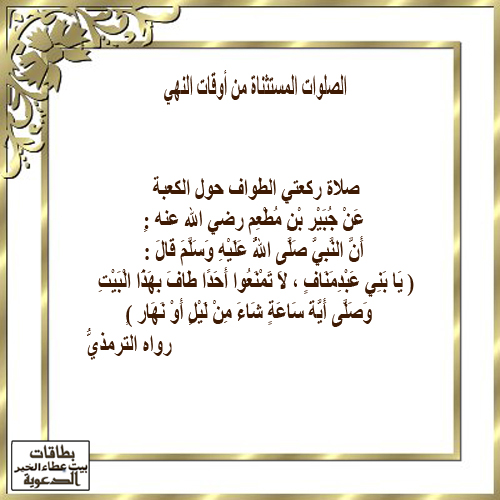 الصلوات المستثناة من أوقات النهي
صلاة ركعتي الطواف حول الكعبة
عَنْ جُبَيْرِ بْنِ مُطْعِمٍ رضي الله عنه :
أَنَّ النَّبِيَّ صَلَّى اللهُ عَلَيْهِ وَسَلَّمَ قَالَ :
( يَا بَنِي عَبْدِمَنَافٍ ، لاَ تَمْنَعُوا أَحَدًا طَافَ بِهَذَا الْبَيْتِ
وَصَلَّى أَيَّةَ سَاعَةٍ شَاءَ مِنْ لَيْلٍ أَوْ نَهَارٍ )
رواه الترمذيُّ
بطاقات
بيت عطاء الخير
الدعوية